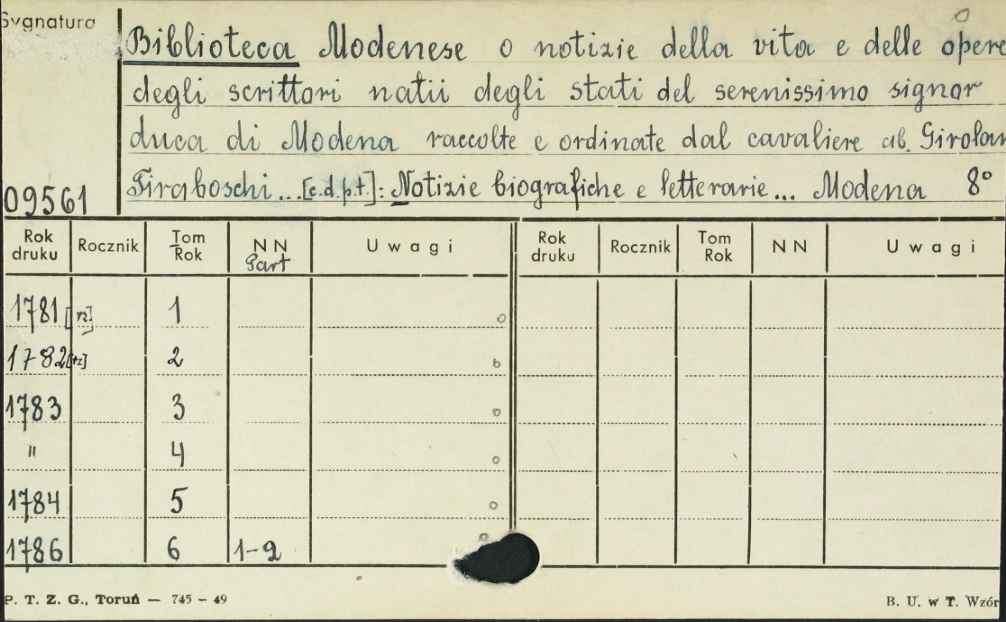 Sygnatura
Biblioteca Modenese o notizie della vita e delle opere
degli scrittori natii degli stati del serenissimo signor
duca di Modena raccolte e ordinate dal cavaliere ab. Girolam
Tiraboschi...[c.d.p.t.]: Notizie biografiche e letterarie... Modena 8°
09561
Rok druku Rocznik Tom Rok NN Part Uwagi Rok druku Rocznik Tom Rok NN Uwagi
1781 1
1782 2
1783 3
" 4
1784 5
1786 6 1-2
P. T. Z. G., Toruń — 745 - 49 B. U. w T. Wzór